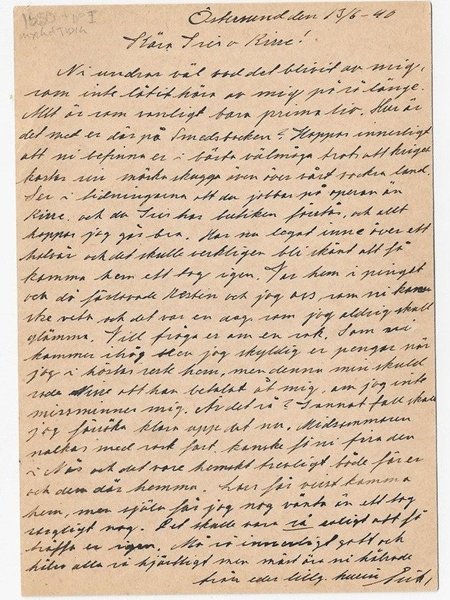 Östersund den 13/6-40
Kära Siv o Kirre!
Ni undrar väl vad det blivit av mig,
som inte låtit höra av mig på så länge.
Allt är som vanligt bara prima liv. Hur är
det med er där på Smedsbacken? Hoppas innerligt
att ni befinner er i bästa välmåga trots att kriget
kastar sin mörka skugga även över vårt vackra land.
Ser i tidningarna att du jobbar på operan än
Kirre, och du Siv har butiken förstås, och allt
hoppas jag går bra. Har nu legat inne över ett
halvår och det skulle verkligen bli skönt att få
komma hem ett tag igen. Var hem i pingst
och då förlovade Kerstin och jag oss som ni kan
ske veta och det var en dag som jag aldrig skall
glömma. Vill fråga er om en sak. Som ni
kommer ihåg blev jag skyldig er pengar när
jag i höstas reste hem, men denna min skuld
sade Arne att han betalat åt mig, om jag inte
missminner mig. Är det så? I annat fall skall
jag försöka klara upp det nu. Midsommaren
nalkas med rask fart, kanske få ni fira den
i Nås och det vore hemskt trevligt både för er
och dem där hemma. Lars får visst komma
hem, men själv får jag nog vänta än ett tag
sorgligt nog. Det skulle vara så roligt att få
träffa er igen. Må så innerligt gott och
hälsa alla så hjärtligt men mest äro ni hälsade
från eder lillg.